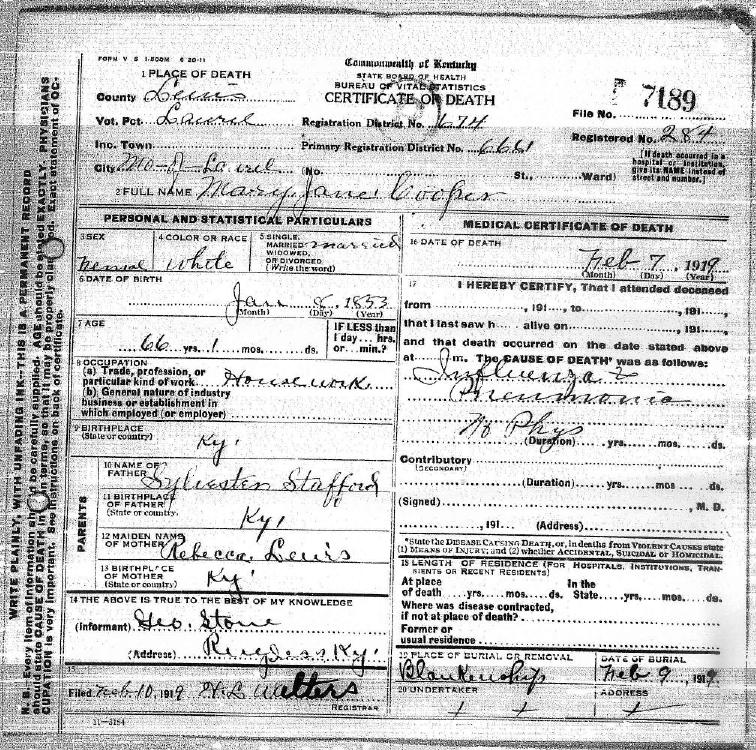 FORM V S 1-500M 6 20-11
Commonwealth of Kentucky
STATE BOARD OF HEALTH
BUREAU OF VITAL STATISTICS
CERTIFICATE OF DEATH
1 PLACE OF DEATH
County Lewis
Vot. Pct. Laurel
Inc. Town
City Mo-J-Laurel (No. St., Ward)
Registration District No. 674
Primary Registration District No. 6661
7189
File No.
Registered No. 284
[If death occurred in a hospital or institution, give its NAME instead of street and number.]
2 FULL NAME Mary Jane Cooper
PERSONAL AND STATISTICAL PARTICULARS
3 SEX
Femal
4 COLOR OR RACE
White
5 SINGLE, MARRIED, WIDOWED, OR DIVORCED (Write the word)
married
6 DATE OF BIRTH
Jan 8, 1853
(Month) (Day) (Year)
7 AGE
66 yrs. 1 mos. ds.
IF LESS than 1 day ... hrs. or ... min.?
8 OCCUPATION
(a) Trade, profession, or
particular kind of work House work
(b) General nature of industry
business or establishment in
which employed (or employer)
9 BIRTHPLACE
(State or country)
Ky.
PARENTS
10 NAME OF FATHER
Sylvester Stafford
11 BIRTHPLACE OF FATHER
(State or country.
Ky,
12 MAIDEN NAME OF MOTHER
Rebecca Lewis
13 BIRTHPLACE OF MOTHER
(State or country)
Ky
14 THE ABOVE IS TRUE TO THE BEST OF MY KNOWLEDGE
(Informant) Geo. Stone
(Address) Ky.
15
Filed Feb 10, 1919 Walters
REGISTRAR
11-3184
MEDICAL CERTIFICATE OF DEATH
16 DATE OF DEATH
Feb 7, 1919
(Month) (Day) (Year)
17 I HEREBY CERTIFY, That I attended deceased
from , 191 , to , 191 ,
that I last saw h alive on , 191 ,
and that death occurred on the date stated above
at m. The CAUSE OF DEATH* was as follows:
Influenza &
Pneumonia
No Phys
(Duration) yrs. mos. ds.
Contributory
(SECONDARY)
(Duration) yrs. mos ds.
(Signed) , M. D.
, 191 (Address)
*State the DISEASE CAUSING DEATH, or, in deaths from VIOLENT CAUSES state
(1) MEANS OF INJURY; and (2) whether ACCIDENTAL, SUICIDAL or HOMICIDAL.
18 LENGTH OF RESIDENCE (FOR HOSPITALS, INSTITUTIONS, TRANSIENTS OR RECENT RESIDENTS)
At place of death yrs. mos. ds. In the State yrs. mos. ds.
Where was disease contracted,
if not at place of death?
Former or
usual residence
19 PLACE OF BURIAL OR REMOVAL
Blankenship
DATE OF BURIAL
Feb 9, 1919
20 UNDERTAKER
ADDRESS
WRITE PLAINLY, WITH UNFADING INK—THIS IS A PERMANENT RECORD